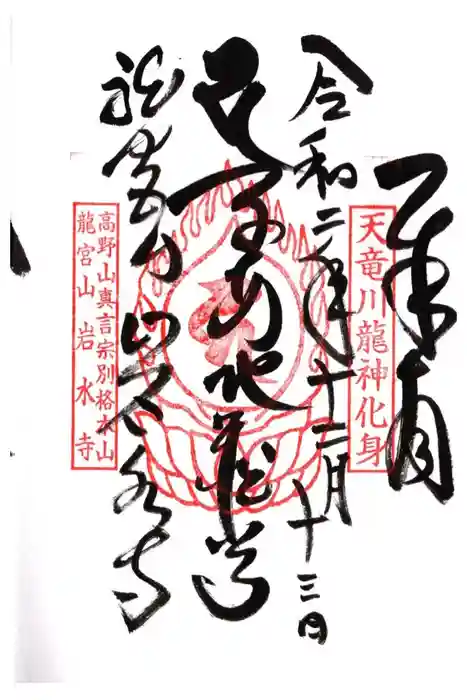 奉拝
天竜川龍神化身
令和二年十二月十三日
子安地蔵尊
龍宮山 岩水寺
高野山真言宗別格本山
龍宮山岩水寺